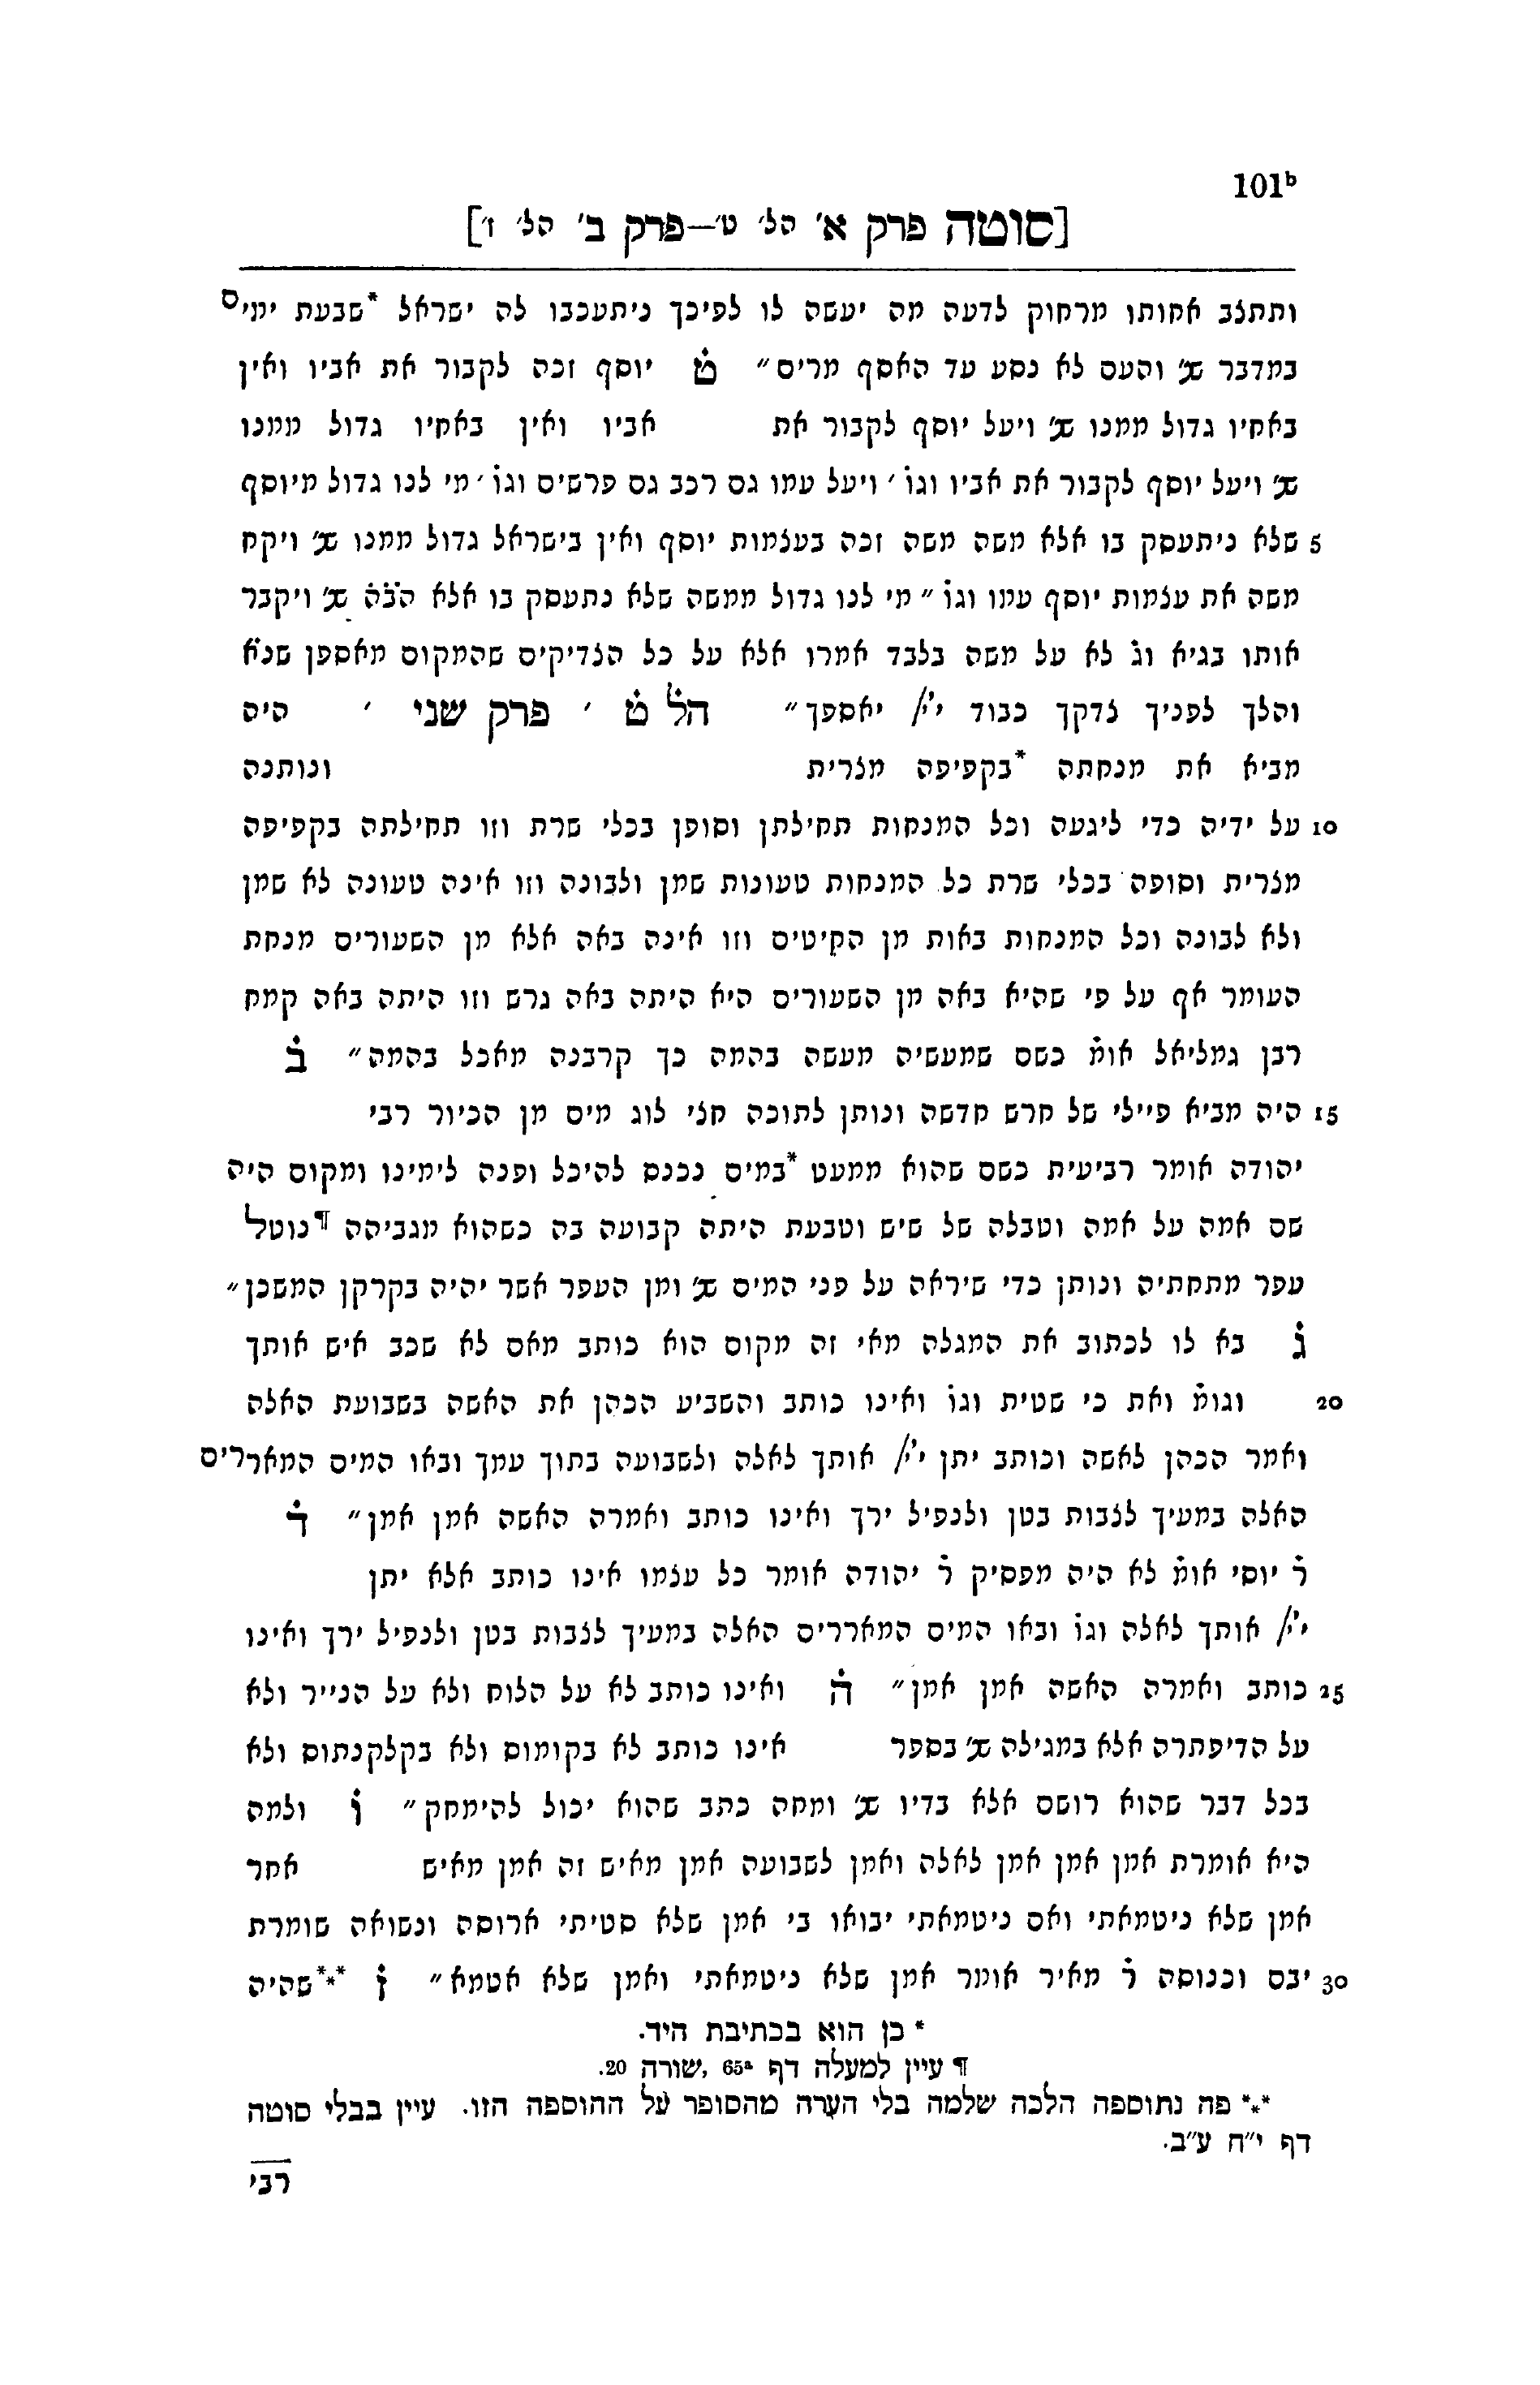 101ᵇ
[סוטה פרק א׳ הל׳ ט׳—פרק ב׳ הל׳ ז׳]
ותתצב אחותו מרחוק לדעה מה יעשה לו לפיכך ניתעכבו לה ישראל *שבעת ימים
במדבר שנ׳ והעם לא נסע עד האסף מרים״ ט̇ יוסף זכה לקבור את אביו ואין
באחיו גדול ממנו שנ׳ ויעל יוסף לקבור את אביו ואין באחיו גדול ממנו
שנ׳ ויעל יוסף לקבור את אביו וגו̇ ׳ ויעל עמו גם רכב גם פרשים וגו̇ ׳ מי לנו גדול מיוסף
5 שלא ניתעסק בו אלא משה משה זכה בעצמות יוסף ואין בישראל גדול ממנו שנ׳ ויקח
משה את עצמות יוסף עמו וגו̇ ״ מי לנו גדול ממשה שלא נתעסק בו אלא הקב̇ה̇ שנ׳ ויקבר
אותו בגיא וג̇ לא על משה בלבד אמרו אלא על כל הצדיקים שהמקום מאספן שנ̇א̇
והלך לפניך צדקך כבוד י׳י׳ יאספך״ הל̇ ט̇ ׳ פרק שני ׳ היה
מביא את מנחתה *בקפיפה מצרית ונותנה
10 על ידיה כדי ליגעה וכל המנחות תחילתן וסופן בכלי שרת וזו תחילתה בקפיפה
מצרית וסופה בכלי שרת כל המנחות טעונות שמן ולבונה וזו אינה טעונה לא שמן
ולא לבונה וכל המנחות באות מן החיטים וזו אינה באה אלא מן השעורים מנחת
העומר אף על פי שהיא באה מן השעורים היא היתה באה גרש וזו היתה באה קמח
רבן גמליאל אומ̇ כשם שמעשיה מעשה בהמה כך קרבנה מאכל בהמה״ ב̇
15 היה מביא פיילי של חרש חדשה ונותן לתוכה חצי לוג מים מן הכיור רבי
יהודה אומר רביעית כשם שהוא ממעט *במים נכנס להיכל ופנה לימינו ומקום היה
שם אמה על אמה וטבלה של שיש וטבעת היתה קבועה בה כשהוא מגביהה ¶נוטל
עפר מתחתיה ונותן כדי שיראה על פני המים שנ׳ ומן העפר אשר יהיה בקרקן המשכן״
ג̇ בא לו לכתוב את המגלה מאי זה מקום הוא כותב מאם לא שכב איש אותך
20 וגומ̇ ואת כי שטית וגו̇ ואינו כותב והשביע הכהן את האשה בשבועת האלה
ואמר הכהן לאשה וכותב יתן י׳י׳ אותך לאלה ולשבועה בתוך עמך ובאו המים המאררים
האלה במעיך לצבות בטן ולנפיל ירך ואינו כותב ואמרה האשה אמן אמן״ ד̇
ר̇ יוסי אומ̇ לא היה מפסיק ר̇ יהודה אומר כל עצמו אינו כותב אלא יתן
י׳י׳ אותך לאלה וגו̇ ובאו המים המאררים האלה במעיך לצבות בטן ולנפיל ירך ואינו
25 כותב ואמרה האשה אמן אמן״ ה̇ ואינו כותב לא על הלוח ולא על הנייר ולא
על הדיפתרה אלא במגילה שנ׳ בספר אינו כותב לא בקומוס ולא בקלקנתוס ולא
בכל דבר שהוא רושם אלא בדיו שנ׳ ומחה כתב שהוא יכול להימחק״ ו̇ ולמה
היא אומרת אמן אמן אמן לאלה ואמן לשבועה אמן מאיש זה אמן מאיש אחר
אמן שלא ניטמאתי ואם ניטמאתי יבואו בי אמן שלא סטיתי ארוסה ונשואה שומרת
30 יבם וכנוסה ר̇ מאיר אומר אמן שלא ניטמאתי ואמן שלא אטמא״ ז̇ ***שהיה
* כן הוא בכתיבת היד.
¶ עיין למעלה דף 65ᵃ, שורה 20.
*** פה נתוספה הלכה שלמה בלי הערה מהסופר על ההוספה הזו. עיין בבלי סוטה
דף י״ח ע״ב.
רבי